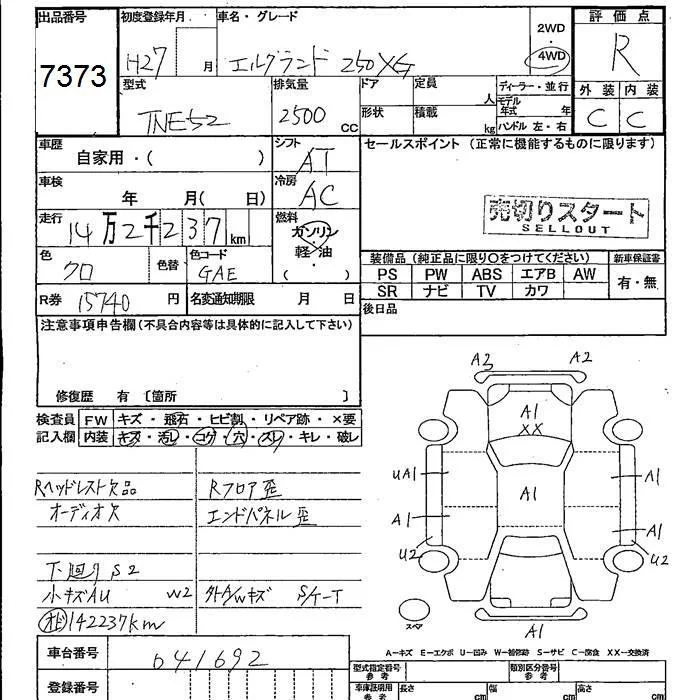 出品番号
7373
初度登録年月
H27 月
車名・グレード
エルグランド 250XG
2WD
4WD
評価点
R
型式
TNE52
排気量
2500 cc
ドア
形状
定員 人
積載 kg
ディーラー・並行
モデル年式 年
ハンドル 左・右
外装 内装
C C
車歴
自家用・( )
シフト
AT
セールスポイント (正常に機能するものに限ります)
車検
年 月( 日)
冷房
AC
売切りスタート
SELLOUT
走行
14万2千237km
燃料
ガソリン
軽油
( )
色
クロ
色替
色コード
GAE
装備品 (純正品に限り○をつけてください)
新車保証書
PS PW ABS エアB AW
SR ナビ TV カワ
有・無
R券 15740 円
名変通知期限 月 日
後日品
注意事項申告欄 (不具合内容等は具体的に記入して下さい)
修復歴 有 〔箇所 〕
検査員
記入欄
FW キズ・飛石・ヒビ割・リペア跡・×要
内装 キズ・汚レ・コゲ・穴・スレ・キレ・破レ
Rヘッドレスト欠品
Rフロア歪
オーディオ欠
エンドパネル歪
下廻り S2
小キズAU W2
S/ケーT
142237km
A2 A2
A1
XX
UA1
A1
A1
A1
A1
U2
U2
スペア
A1
A-キズ E-エクボ U-凹み W-補修跡 S-サビ C-腐食 XX-交換済
車台番号
041692
登録番号
型式指定番号
参考
類別区分番号
参考
車庫証明用
参考
長さ cm
幅 cm
高さ cm